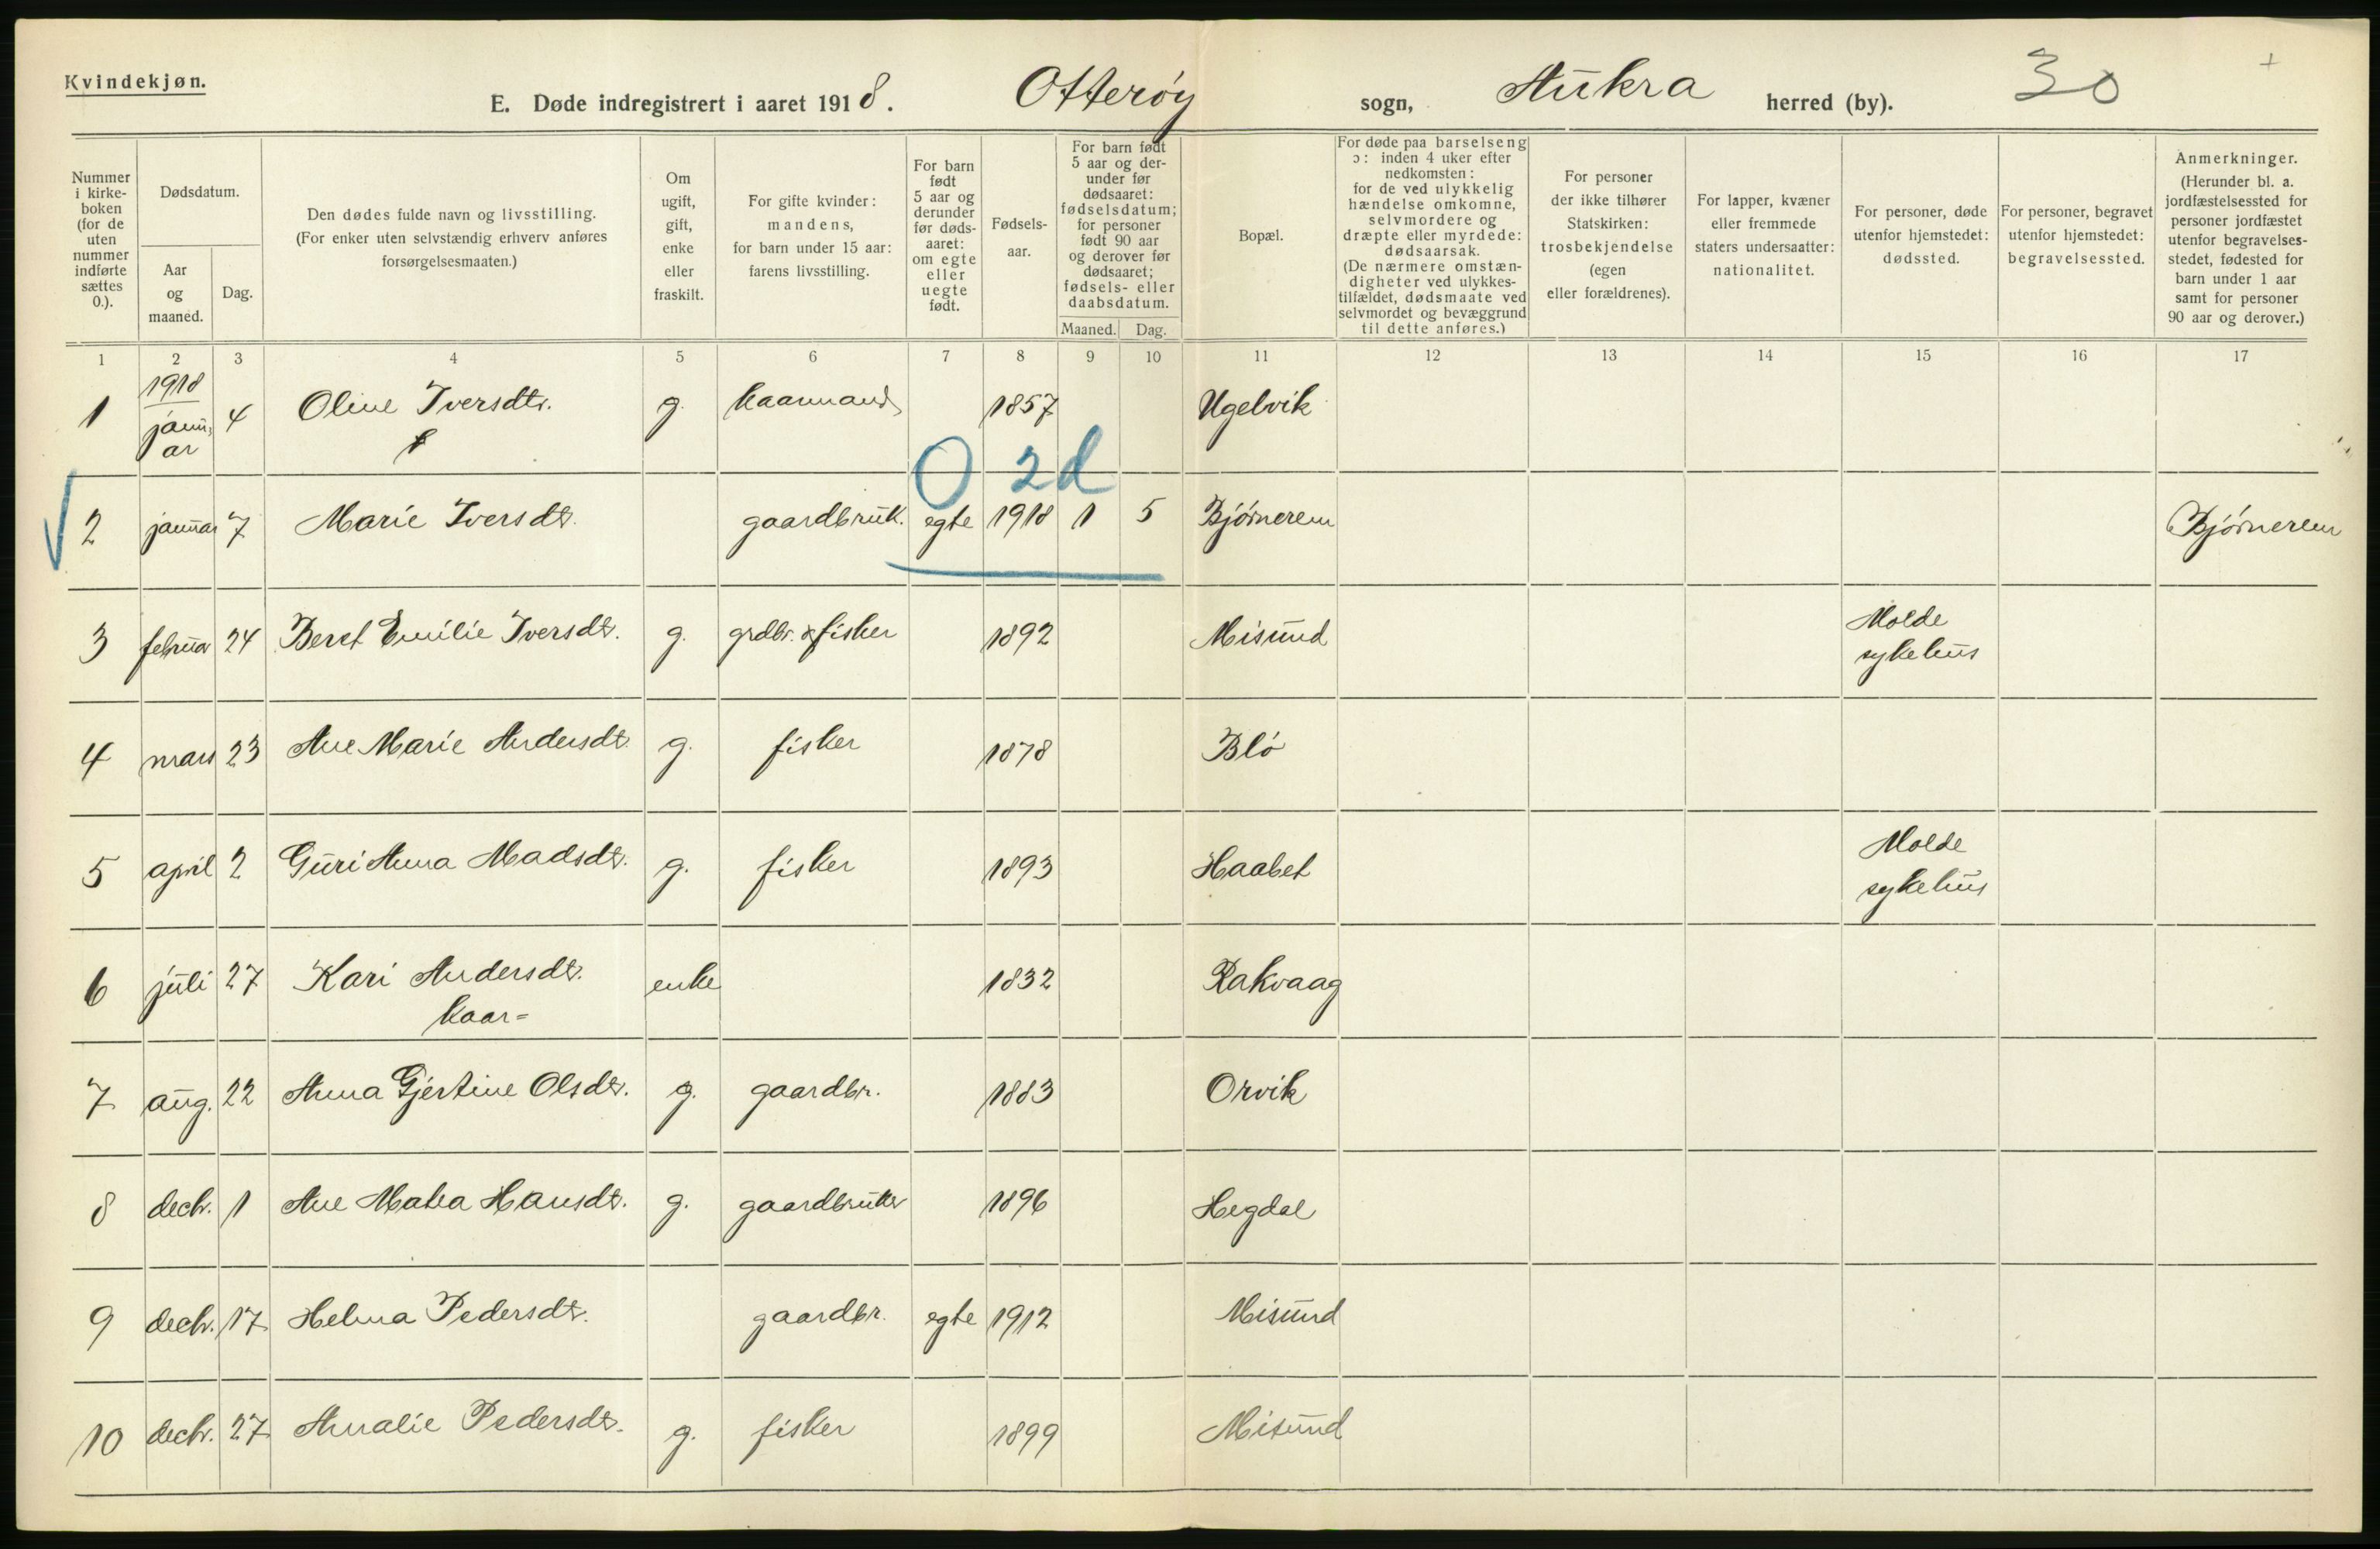 Kvindekjøn.
E. Døde indregistrert i aaret 1918. Otterøy sogn, Aukra herred (by). 30
Nummer i kirke-boken (for de uten nummer indførte sættes 0.).
Dødsdatum.
Aar og maaned.
Dag.
Den dødes fulde navn og livsstilling.
(For enker uten selvstændig erhverv anføres
forsørgelsesmaaten.)
Om ugift, gift, enke eller fraskilt.
For gifte kvinder: mandens, for barn under 15 aar: farens livsstilling.
For barn født 5 aar og derunder før døds-aaret: om egte eller uegte født.
Fødsels-aar.
For barn født 5 aar og der-under før dødsaaret: fødselsdatum; for personer født 90 aar og derover før dødsaaret; fødsels- eller daabsdatum.
Maaned. Dag.
Bopæl.
For døde paa barselseng ɔ: inden 4 uker efter nedkomsten: for de ved ulykkelig hændelse omkomne, selvmordere og dræpte eller myrdede: dødsaarsak. (De nærmere omstæn-digheter ved ulykkes-tilfældet, dødsmaate ved selvmordet og bevæggrund til dette anføres.)
For personer der ikke tilhører Statskirken: trosbekjendelse (egen eller forældrenes).
For lapper, kvæner eller fremmede staters undersaatter: nationalitet.
For personer, døde utenfor hjemstedet: dødssted.
For personer, begravet utenfor hjemstedet: begravelsessted.
Anmerkninger. (Herunder bl. a. jordfæstelsessted for personer jordfæstet utenfor begravelses-stedet, fødested for barn under 1 aar samt for personer 90 aar og derover.)
1 2 3 4 5 6 7 8 9 10 11 12 13 14 15 16 17
1918
1 januar 4 Oline Iversdtr. g. kaarmand 1857 Ugelvik
0 2d
2 januar 7 Marie Iversdt. gaardbruk. egte 1918 1 5 Bjørnerem Bjørnerem
3 februar 24 Beret Emilie Iversdt. g. grdbr. & fisker 1892 Misund Molde sykehus
4 mars 23 Ane Marie Andersdt. g. fisker 1878 Blø
5 april 2 Guri Anna Madsdt. g. fisker 1893 Haabet Molde sykehus
6 juli 27 Kari Andersdt. enke 1832 Rakvaag
kaar=
7 aug. 22 Anna Gjertine Olsdt. g. gaardbr. 1883 Orvik
8 decbr. 1 Ane Malea Hansdt. g. gaardbruker 1896 Hegdal
9 decbr. 17 Helma Pedersdt. gaardbr. egte 1912 Misund
10 decbr. 27 Amalie Pedersdt. g. fisker 1899 Misund